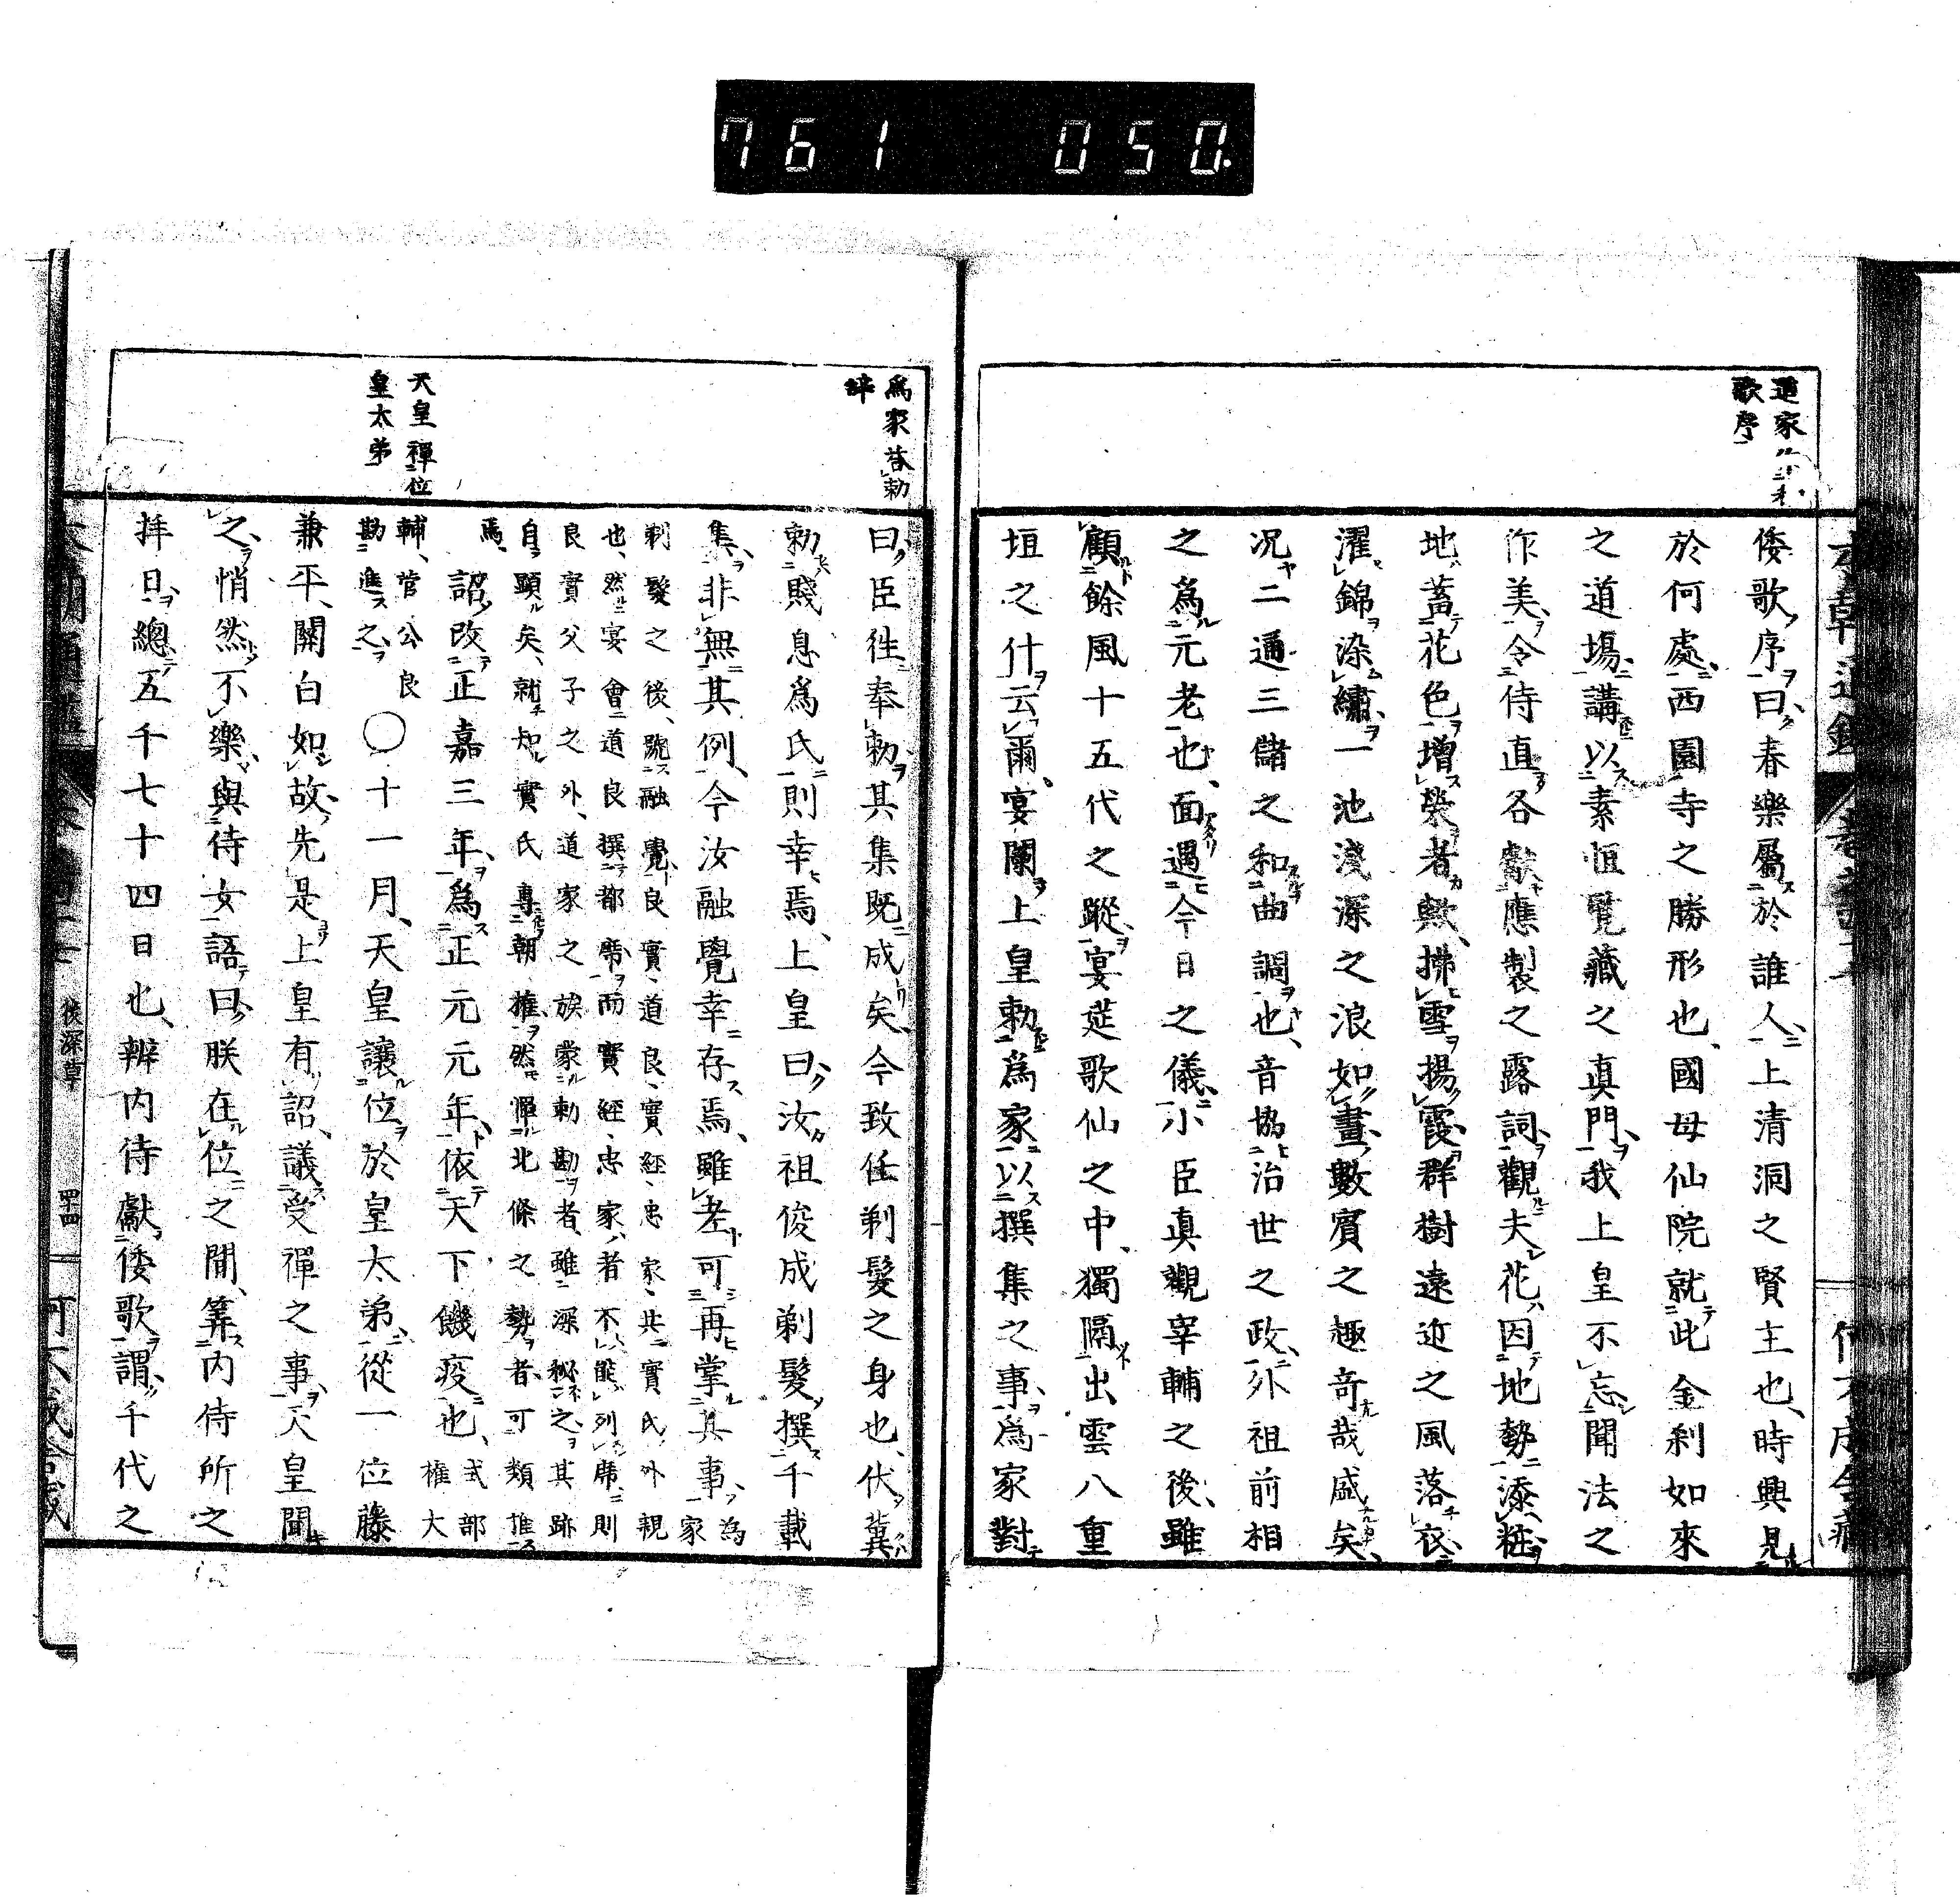 761 050.
歌序
倭歌序曰春樂屬於誰人上清洞之賢主也時興見
於何處西園寺之勝形也國母仙院就此金刹如來
之道場講以素恒覧藏之真門我上皇不忘聞法之
作美令侍直各獻應製之露詞觀夫花因地勢添粧
地蓄花色增榮者歟拂雪揚霞群樹遠近之風落衣
濯錦染繡一池淺深之浪如畫數賓之趣奇哉盛矣
况二通三儲之和曲調也音協治世之政外祖前相
之為元老也面遇今日之儀小臣真觀宰輔之後雖
顧餘風十五代之蹤宴莚歌仙之中獨隔出雲八重
垣之什云爾宴闌上皇勅為家以撰集之事為家對
為家答勅
辭
曰臣徃奉勅其集既成矣今致仕剃髮之身也伏冀
勅賤息爲氏則幸焉上皇曰汝祖俊成剃髮撰千載
集非無其例今汝融覺幸存焉雖老可再掌其事為家
剃髮之後號融覺良實道良實經忠家共實氏外親
也然宴會道良撰都席而實經忠家者不能列席則
良實父子之外道家之族蒙勅勘者雖深秘之其跡
自顯矣就知實氏專朝權然憚北條之勢者可類推
焉
詔改正嘉三年爲正元元年依天下饑疫也式部權大
輔菅公良
勘進之
〇十一月天皇讓位於皇太弟從一位藤
天皇禪位
皇太弟
兼平關白如故先是上皇有詔議受禪之事天皇聞
之悄然不樂與侍女語曰朕在位之間筭内侍所之
拝日總五千七十四日也辨内侍獻倭歌謂千代之
後深草 四十四